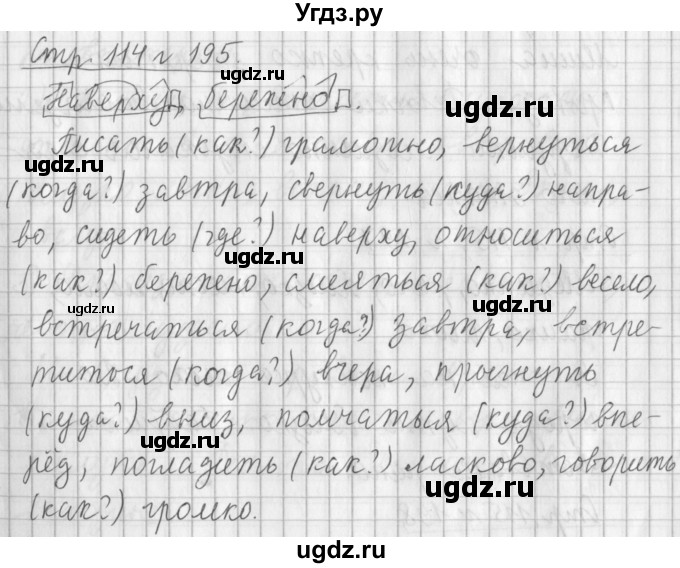 Угдз.ру
Стр 114 г 195.
Наверху, бережно.
Писать (как?) грамотно, вернуться
(когда?) завтра, свернуть (куда?) напра-
во, сидеть (где?) наверху, относиться
(как?) бережно, смеяться (как?) весело,
встречаться (когда?) завтра, встре-
титься (когда?) вчера, прыгнуть
(куда?) вниз, помчаться (куда?) впе-
рёд, погладить (как?) ласково, говорить
(как?) громко.
ugdz.ru
ugdz.ru
ugdz.ru
ugdz.ru
ugdz.ru
ugdz.ru
ugdz.ru
ugdz.ru
ugdz.ru
ugdz.ru